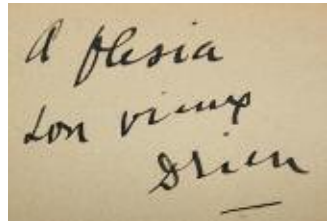 à Plesia
son vieux
Drieu